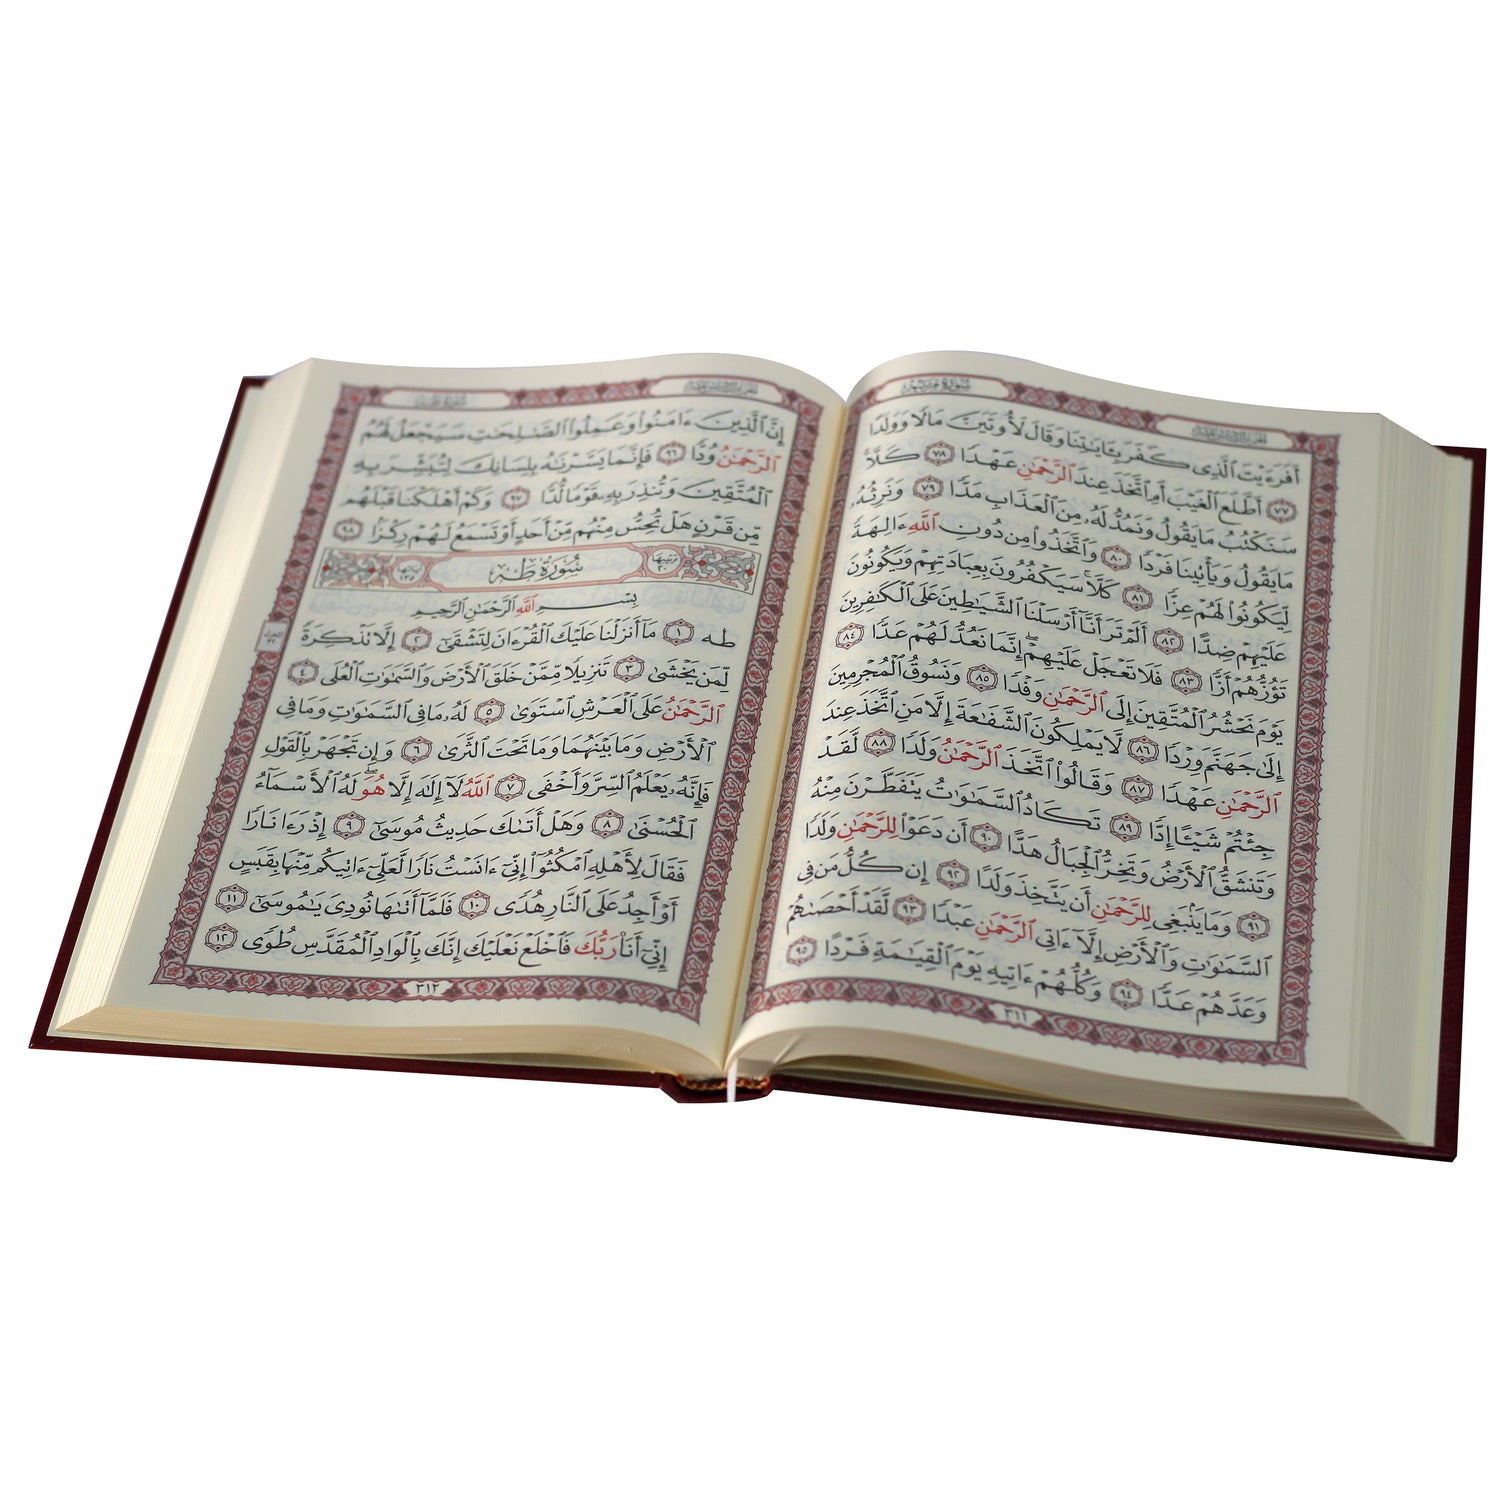 سورة مريم
الجزء السادس عشر
أَفَرَءَيْتَ ٱلَّذِى كَفَرَ بِـَٔايَـٰتِنَا وَقَالَ لَأُوتَيَنَّ مَالًا وَوَلَدًا
٧٧ أَطَّلَعَ ٱلْغَيْبَ أَمِ ٱتَّخَذَ عِندَ ٱلرَّحْمَـٰنِ عَهْدًا ٧٨ كَلَّا
سَنَكْتُبُ مَا يَقُولُ وَنَمُدُّ لَهُۥ مِنَ ٱلْعَذَابِ مَدًّا ٧٩ وَنَرِثُهُۥ
مَا يَقُولُ وَيَأْتِينَا فَرْدًا ٨٠ وَٱتَّخَذُوا۟ مِن دُونِ ٱللَّهِ ءَالِهَةً
لِّيَكُونُوا۟ لَهُمْ عِزًّا ٨١ كَلَّا سَيَكْفُرُونَ بِعِبَادَتِهِمْ وَيَكُونُونَ
عَلَيْهِمْ ضِدًّا ٨٢ أَلَمْ تَرَ أَنَّآ أَرْسَلْنَا ٱلشَّيَـٰطِينَ عَلَى ٱلْكَـٰفِرِينَ
تَؤُزُّهُمْ أَزًّا ٨٣ فَلَا تَعْجَلْ عَلَيْهِمْ إِنَّمَا نَعُدُّ لَهُمْ عَدًّا ٨٤
يَوْمَ نَحْشُرُ ٱلْمُتَّقِينَ إِلَى ٱلرَّحْمَـٰنِ وَفْدًا ٨٥ وَنَسُوقُ ٱلْمُجْرِمِينَ
إِلَىٰ جَهَنَّمَ وِرْدًا ٨٦ لَّا يَمْلِكُونَ ٱلشَّفَـٰعَةَ إِلَّا مَنِ ٱتَّخَذَ عِندَ
ٱلرَّحْمَـٰنِ عَهْدًا ٨٧ وَقَالُوا۟ ٱتَّخَذَ ٱلرَّحْمَـٰنُ وَلَدًا ٨٨ لَّقَدْ
جِئْتُمْ شَيْـًٔا إِدًّا ٨٩ تَكَادُ ٱلسَّمَـٰوَٰتُ يَتَفَطَّرْنَ مِنْهُ
وَتَنشَقُّ ٱلْأَرْضُ وَتَخِرُّ ٱلْجِبَالُ هَدًّا ٩٠ أَن دَعَوْا۟ لِلرَّحْمَـٰنِ وَلَدًا
٩١ وَمَا يَنۢبَغِى لِلرَّحْمَـٰنِ أَن يَتَّخِذَ وَلَدًا ٩٢ إِن كُلُّ مَن فِى
ٱلسَّمَـٰوَٰتِ وَٱلْأَرْضِ إِلَّآ ءَاتِى ٱلرَّحْمَـٰنِ عَبْدًا ٩٣ لَّقَدْ أَحْصَىٰهُمْ
وَعَدَّهُمْ عَدًّا ٩٤ وَكُلُّهُمْ ءَاتِيهِ يَوْمَ ٱلْقِيَـٰمَةِ فَرْدًا ٩٥
٣١١
الجزء السادس عشر
إِنَّ ٱلَّذِينَ ءَامَنُوا۟ وَعَمِلُوا۟ ٱلصَّـٰلِحَـٰتِ سَيَجْعَلُ لَهُمُ
ٱلرَّحْمَـٰنُ وُدًّا ٩٦ فَإِنَّمَا يَسَّرْنَـٰهُ بِلِسَانِكَ لِتُبَشِّرَ بِهِ
ٱلْمُتَّقِينَ وَتُنذِرَ بِهِۦ قَوْمًا لُّدًّا ٩٧ وَكَمْ أَهْلَكْنَا قَبْلَهُم
مِّن قَرْنٍ هَلْ تُحِسُّ مِنْهُم مِّنْ أَحَدٍ أَوْ تَسْمَعُ لَهُمْ رِكْزًۢا ٩٨
ترتيبها ٢٠ سُورَةُ طه آياتها ١٣٥
بِسْمِ ٱللَّهِ ٱلرَّحْمَـٰنِ ٱلرَّحِيمِ
طه ١ مَآ أَنزَلْنَا عَلَيْكَ ٱلْقُرْءَانَ لِتَشْقَىٰٓ ٢ إِلَّا تَذْكِرَةً
لِّمَن يَخْشَىٰ ٣ تَنزِيلًا مِّمَّنْ خَلَقَ ٱلْأَرْضَ وَٱلسَّمَـٰوَٰتِ ٱلْعُلَى ٤
ٱلرَّحْمَـٰنُ عَلَى ٱلْعَرْشِ ٱسْتَوَىٰ ٥ لَهُۥ مَا فِى ٱلسَّمَـٰوَٰتِ وَمَا فِى
ٱلْأَرْضِ وَمَا بَيْنَهُمَا وَمَا تَحْتَ ٱلثَّرَىٰ ٦ وَإِن تَجْهَرْ بِٱلْقَوْلِ
فَإِنَّهُۥ يَعْلَمُ ٱلسِّرَّ وَأَخْفَى ٧ ٱللَّهُ لَآ إِلَـٰهَ إِلَّا هُوَ ۖ لَهُ ٱلْأَسْمَآءُ
ٱلْحُسْنَىٰ ٨ وَهَلْ أَتَىٰكَ حَدِيثُ مُوسَىٰٓ ٩ إِذْ رَءَا نَارًا
فَقَالَ لِأَهْلِهِ ٱمْكُثُوٓا۟ إِنِّىٓ ءَانَسْتُ نَارًا لَّعَلِّىٓ ءَاتِيكُم مِّنْهَا بِقَبَسٍ
أَوْ أَجِدُ عَلَى ٱلنَّارِ هُدًى ١٠ فَلَمَّآ أَتَىٰهَا نُودِىَ يَـٰمُوسَىٰٓ ١١
إِنِّىٓ أَنَا۠ رَبُّكَ فَٱخْلَعْ نَعْلَيْكَ إِنَّكَ بِٱلْوَادِ ٱلْمُقَدَّسِ طُوًى ١٢
٣١٢